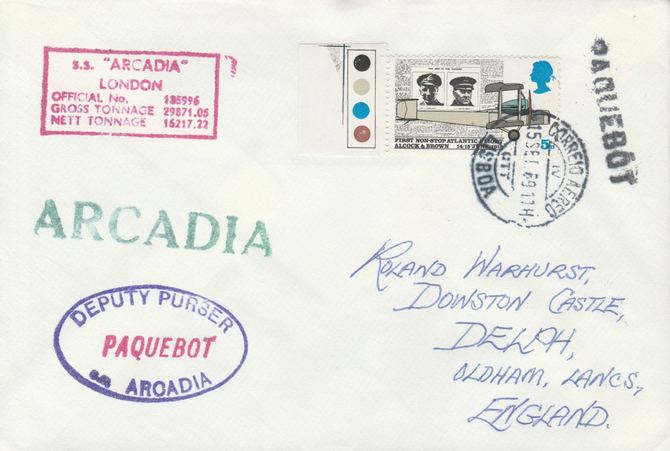 S.S. "ARCADIA"
LONDON
OFFICIAL No. 185996
GROSS TONNAGE 29871.05
NETT TONNAGE 16217.22
FIRST NON-STOP ATLANTIC FLIGHT
ALCOCK & BROWN 14/15 JUNE 1919
5D
CORREIO AEREO
15 SET 69 11H
CTT
LISBOA
PAQUEBOT
ARCADIA
DEPUTY PURSER
PAQUEBOT
SS ARCADIA
ROLAND WARHURST,
DOWSTON CASTLE,
DELPH,
OLDHAM, LANCS,
ENGLAND.